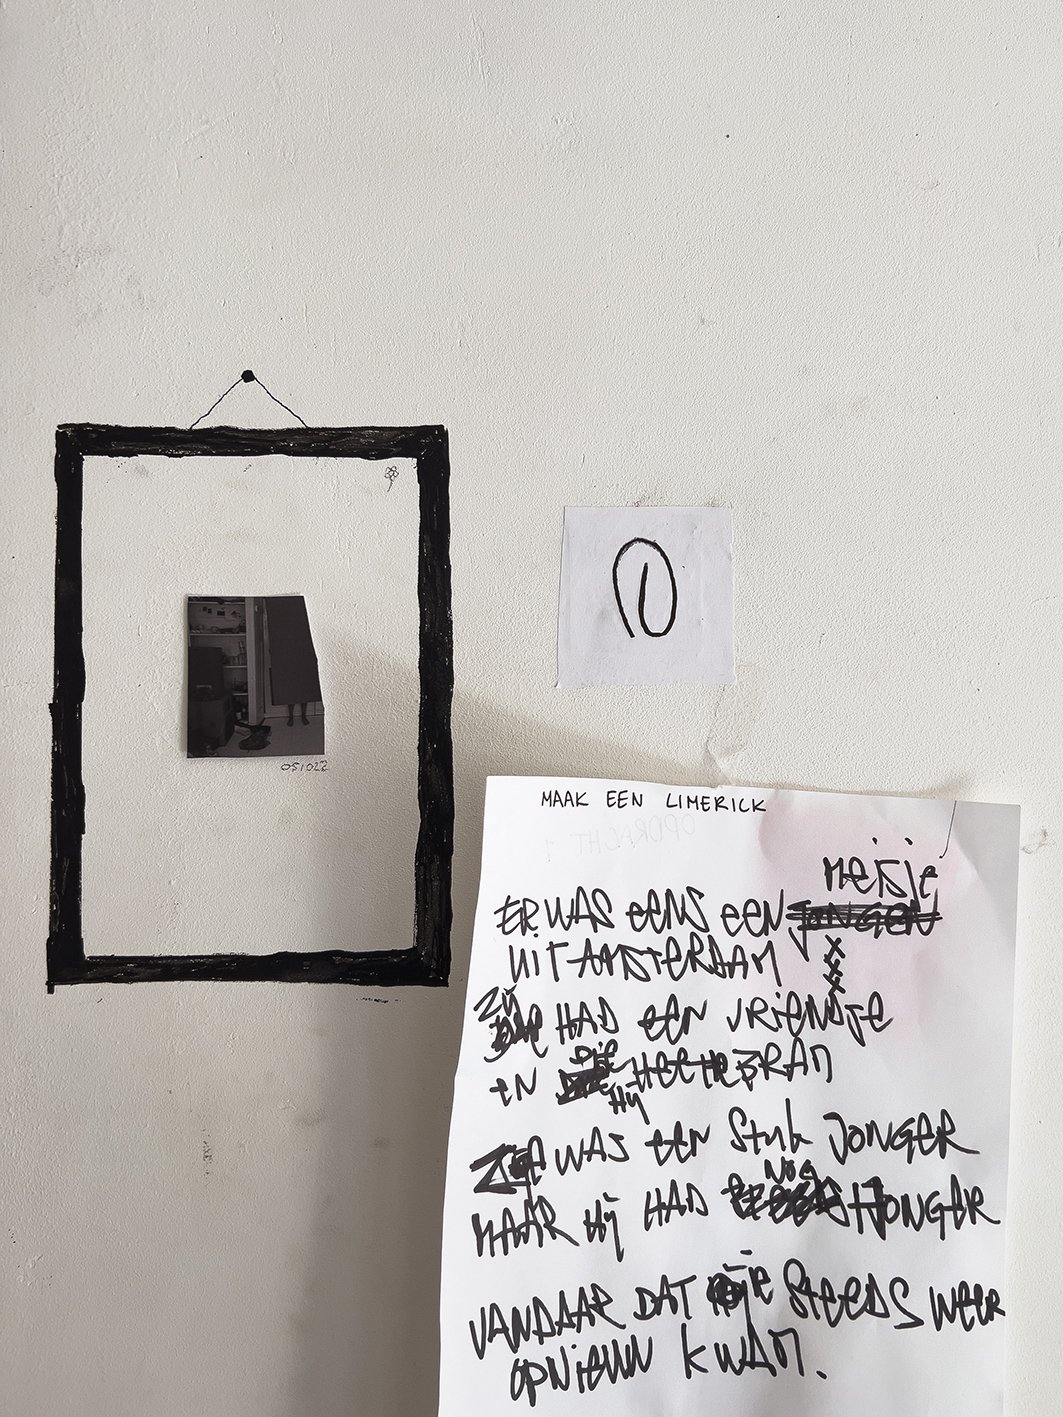 051022
MAAK EEN LIMERICK
OPDRACHT 1
MEISJE
ER WAS EENS EEN JONGEN
UIT AMSTERDAM
XXX
ZIJ
HAD EEN VRIENDJE
DIE
EN HEETTE BRAM
HIJ
WAS EEN STUK JONGER
NOG
MAAR HIJ HAD HONGER
VANDAAR DAT IE STEEDS WEER
OPNIEUW KWAM.